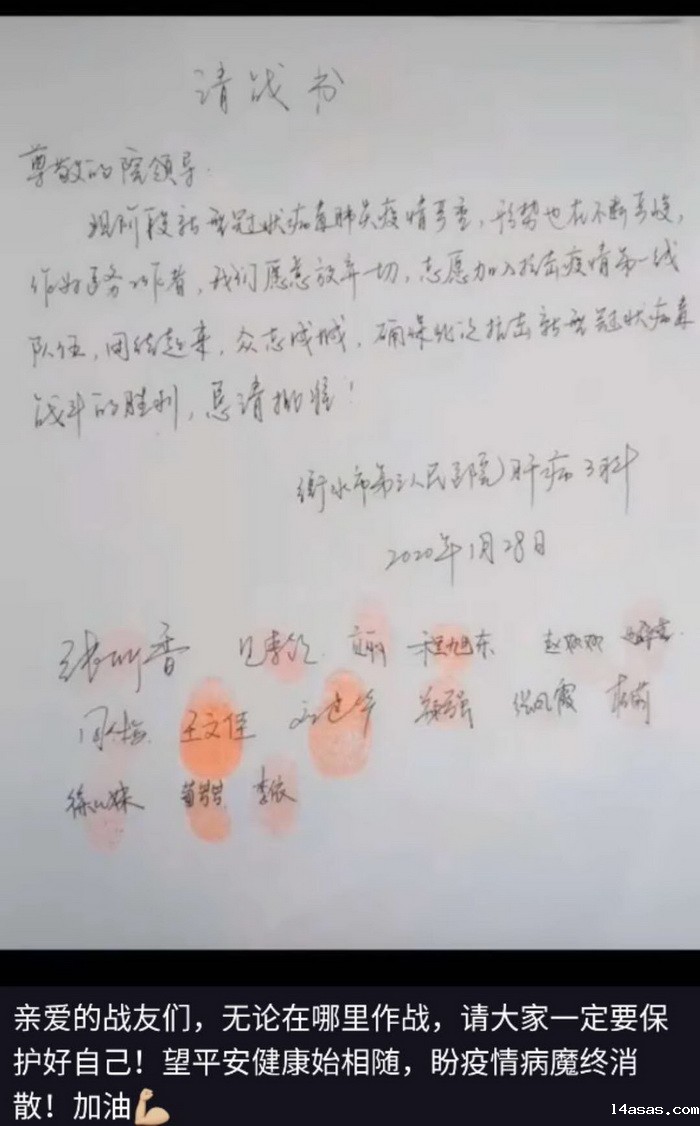 请战书
尊敬的院领导:
现阶段新型冠状病毒肺炎疫情严重,形势也在不断严峻,
作为医务工作者,我们愿意放弃一切,志愿加入抗击疫情第一线
队伍,团结起来,众志成城,确保此次抗击新型冠状病毒
战斗的胜利,恳请批准!
衡水市第三人民医院肝病3科
2020年1月28日
程旭东
王文佳
李依
亲爱的战友们,无论在哪里作战,请大家一定要保
护好自己!望平安健康始相随,盼疫情病魔终消
散!加油💪🏼
14asas.com